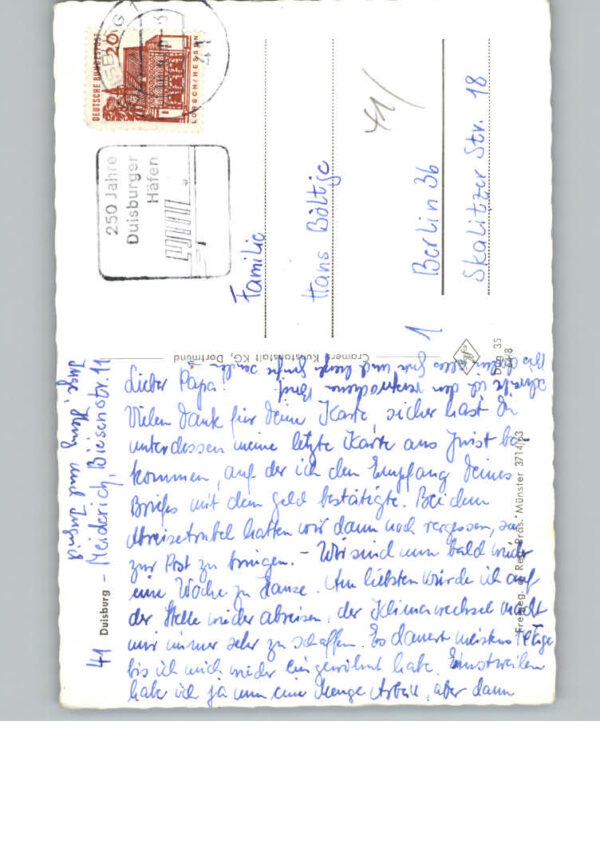 DEUTSCHE BUNDESPOST
20
LORSCH/HESSEN
250 Jahre
Duisburger
Häfen
41/
Familie
Hans Böltje
1
Berlin 36
Skalitzer Str. 18
Cramers Kunstanstalt KG, Dortmund
Dbg 35
41 Duisburg - Meiderich, Biesenstr. 11
Lieber Papa!
Vielen Dank für Deine Karte, sicher hast Du
unterdessen meine letzte Karte aus Juist be-
kommen, auf der ich den Empfang Deines
Briefes mit dem Geld bestätigte. Bei dem
Abreisetrubel hatten wir dann noch vergessen, sie
zur Post zu bringen. - Wir sind nun bald wieder
eine Woche zu Hause. Am liebsten würde ich auf
der Stelle wieder abreisen, der Klimawechsel macht
mir immer sehr zu schaffen. Es dauert meistens 14 Tage
bis ich mich wieder eingewöhnt habe. Einstweilen
habe ich ja nun eine Menge Arbeit, aber dann
schreibe ich den versprochenen Brief.
alles Gute und herzl. Grüße
Inge, und
Freigeg. d. Reg. Präs. Münster 3714/63